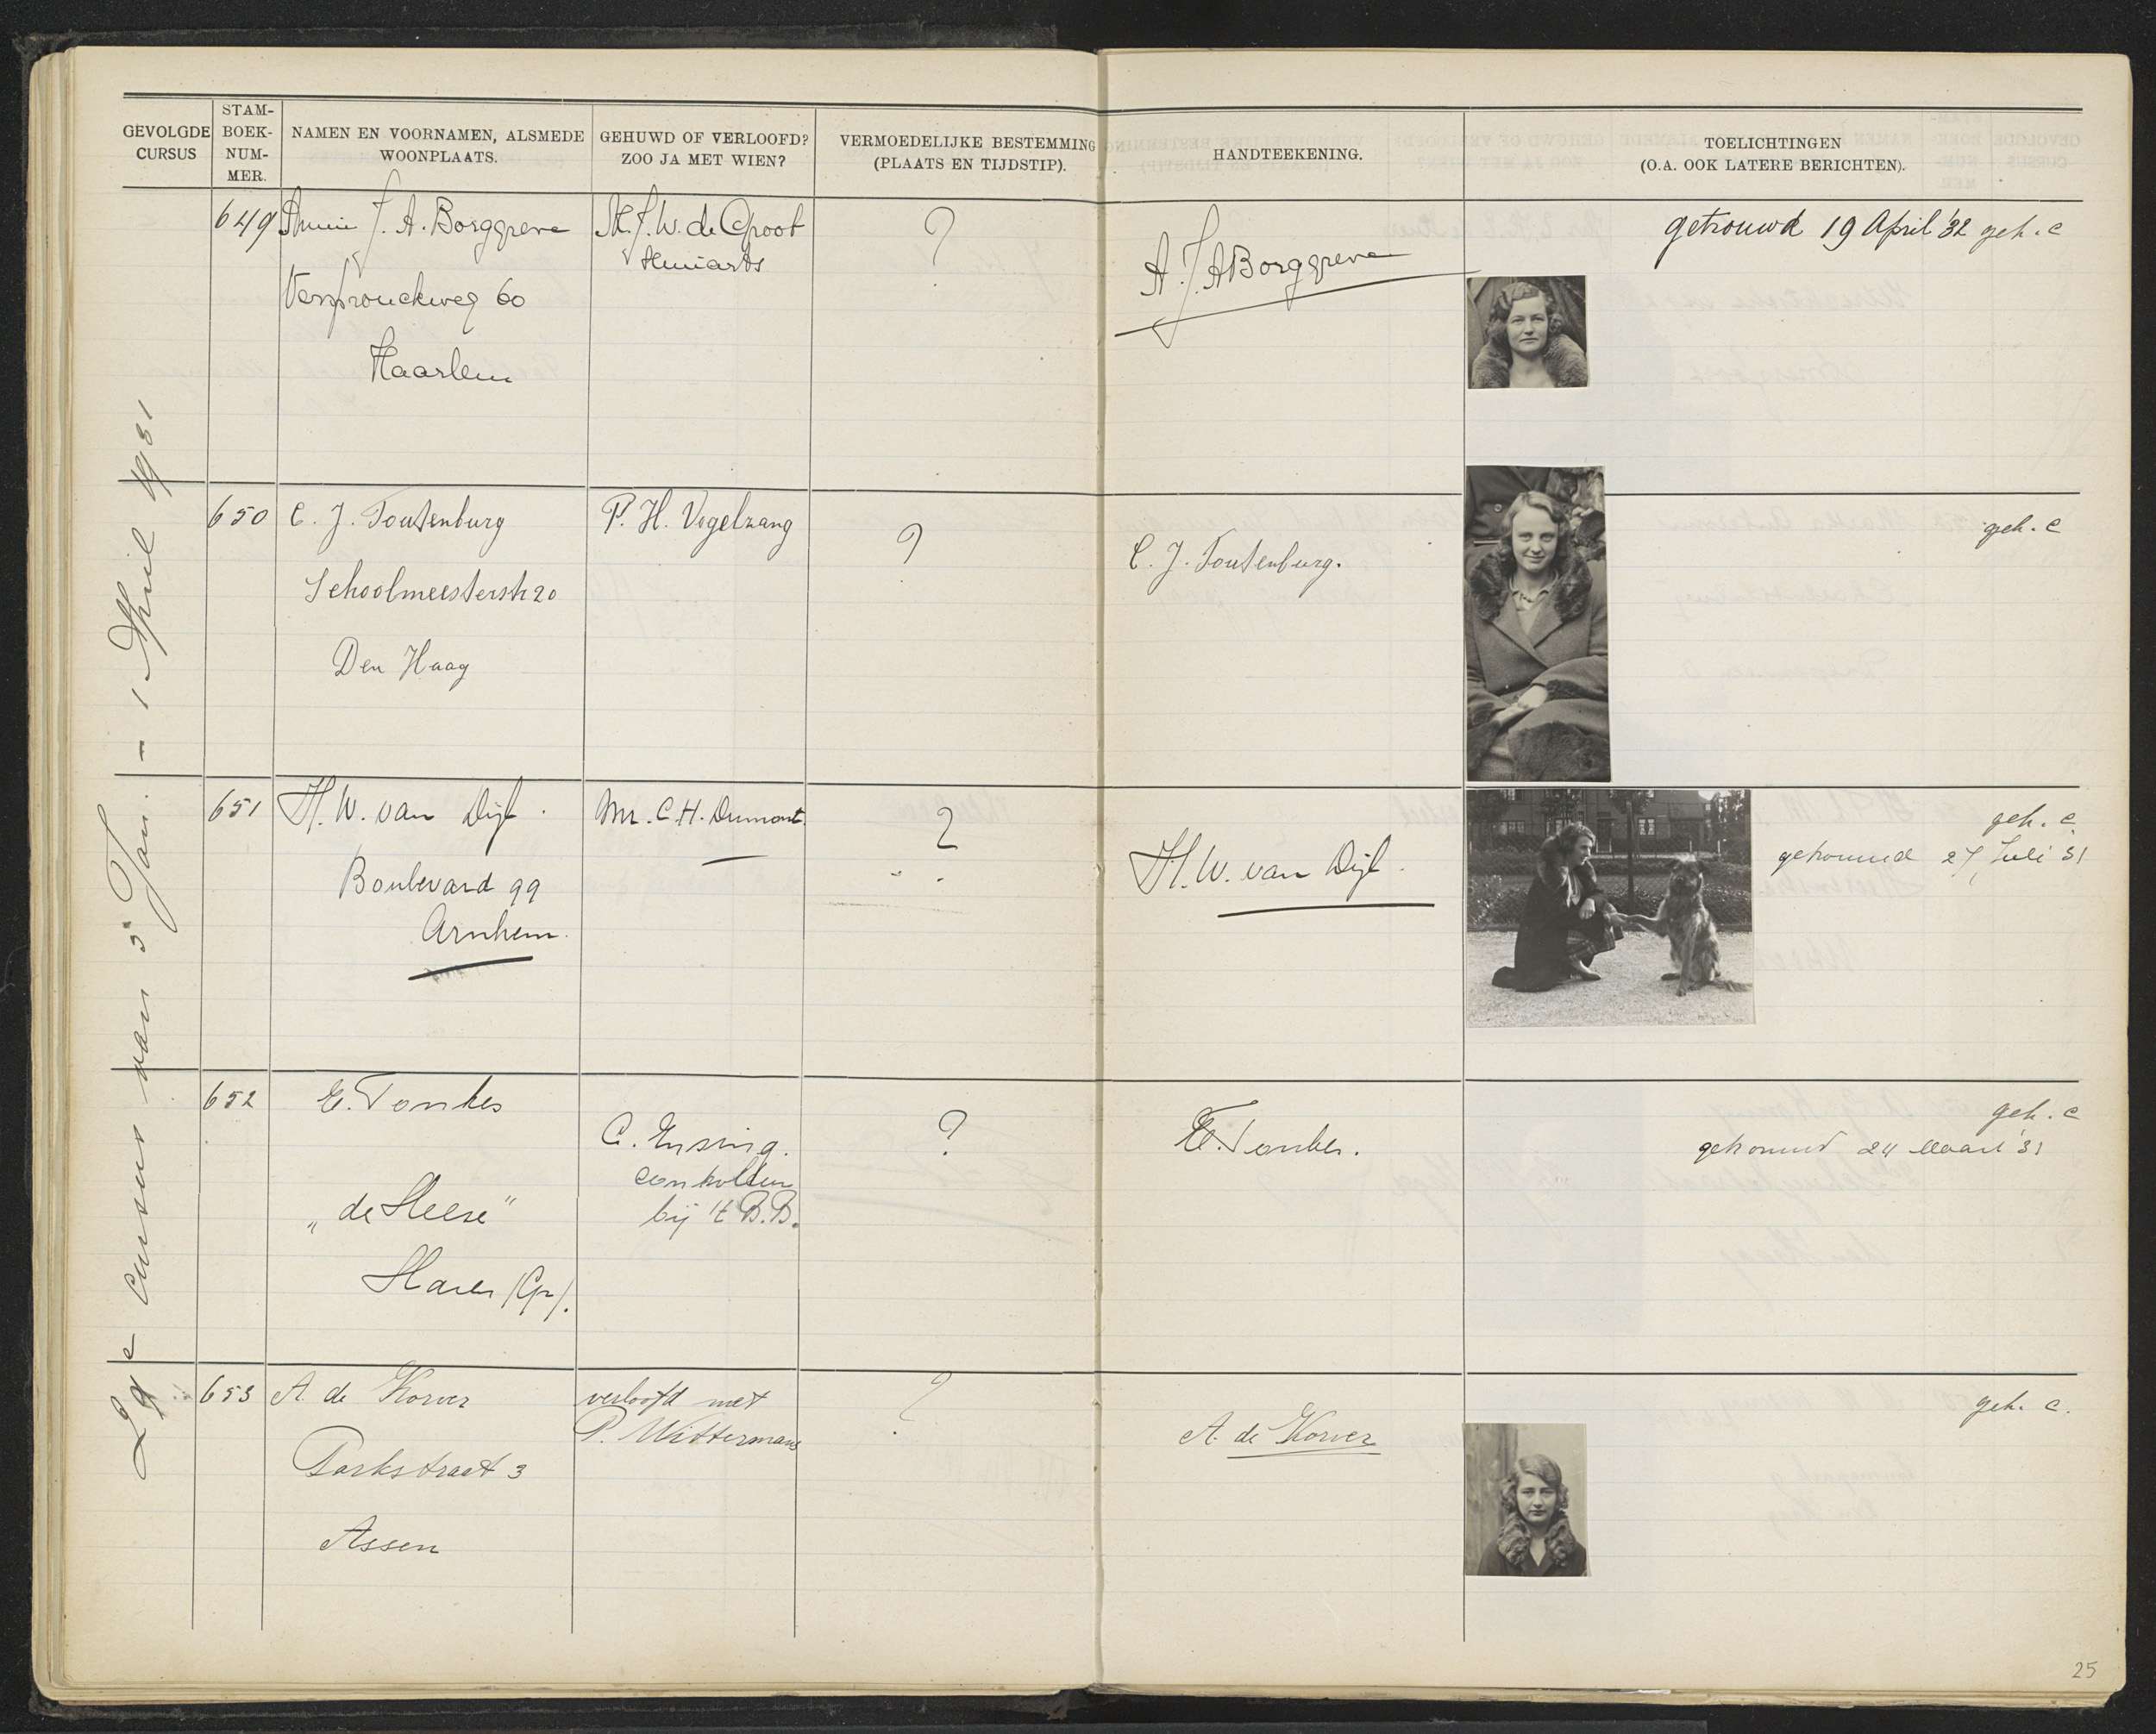 GEVOLGDE
CURSUS
STAM-
BOEK-
NUM-
MER.
NAMEN EN VOORNAMEN, ALSMEDE
WOONPLAATS.
GEHUWD OF VERLOOFD?
ZOO JA MET WIEN?
VERMOEDELIJKE BESTEMMING
(PLAATS EN TIJDSTIP).
HANDTEEKENING.
TOELICHTINGEN
(O.A. OOK LATERE BERICHTEN).
cursus van 5 Jan. - 1 April 1931
649 Annie J. A. Borggreve
Verspronckweg 60
Haarlem
M.J.W. de Groot
?
A J A Borggreve
getrouwd 19 April '32 geh. c
650 C. J. Toutenburg
Schoolmeesterstr 20
Den Haag
P. H. Vogelzang
?
C. J. Toutenburg.
geh. c
651 H. W. van Dijk.
Boulevard 99
Arnhem.
Mr. C. H. Dumont.
?
H. W. van Dijk.
geh. c.
getrouwd 27 Juli 31
652 E. Tonkes
„de Heere"
Haren (Gr).
C. Ensing.
controlleur
bij 't B.B.
?
E. Tonkes.
geh. c
getrouwd 24 Maart '31
653 A. de Korver
Parkstraat 3
Assen
verloofd met
P. Wittermans
?
A. de Korver
geh. c.
25